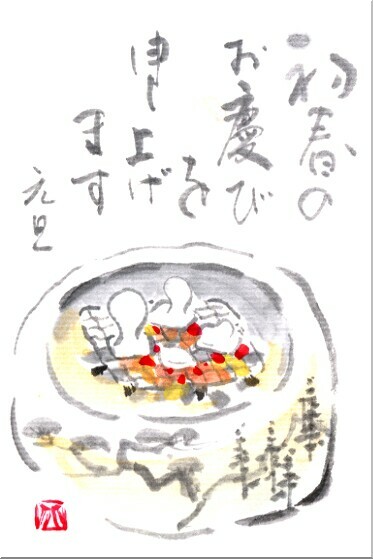 初春の
お慶び
を
申し上げ
ます
元旦